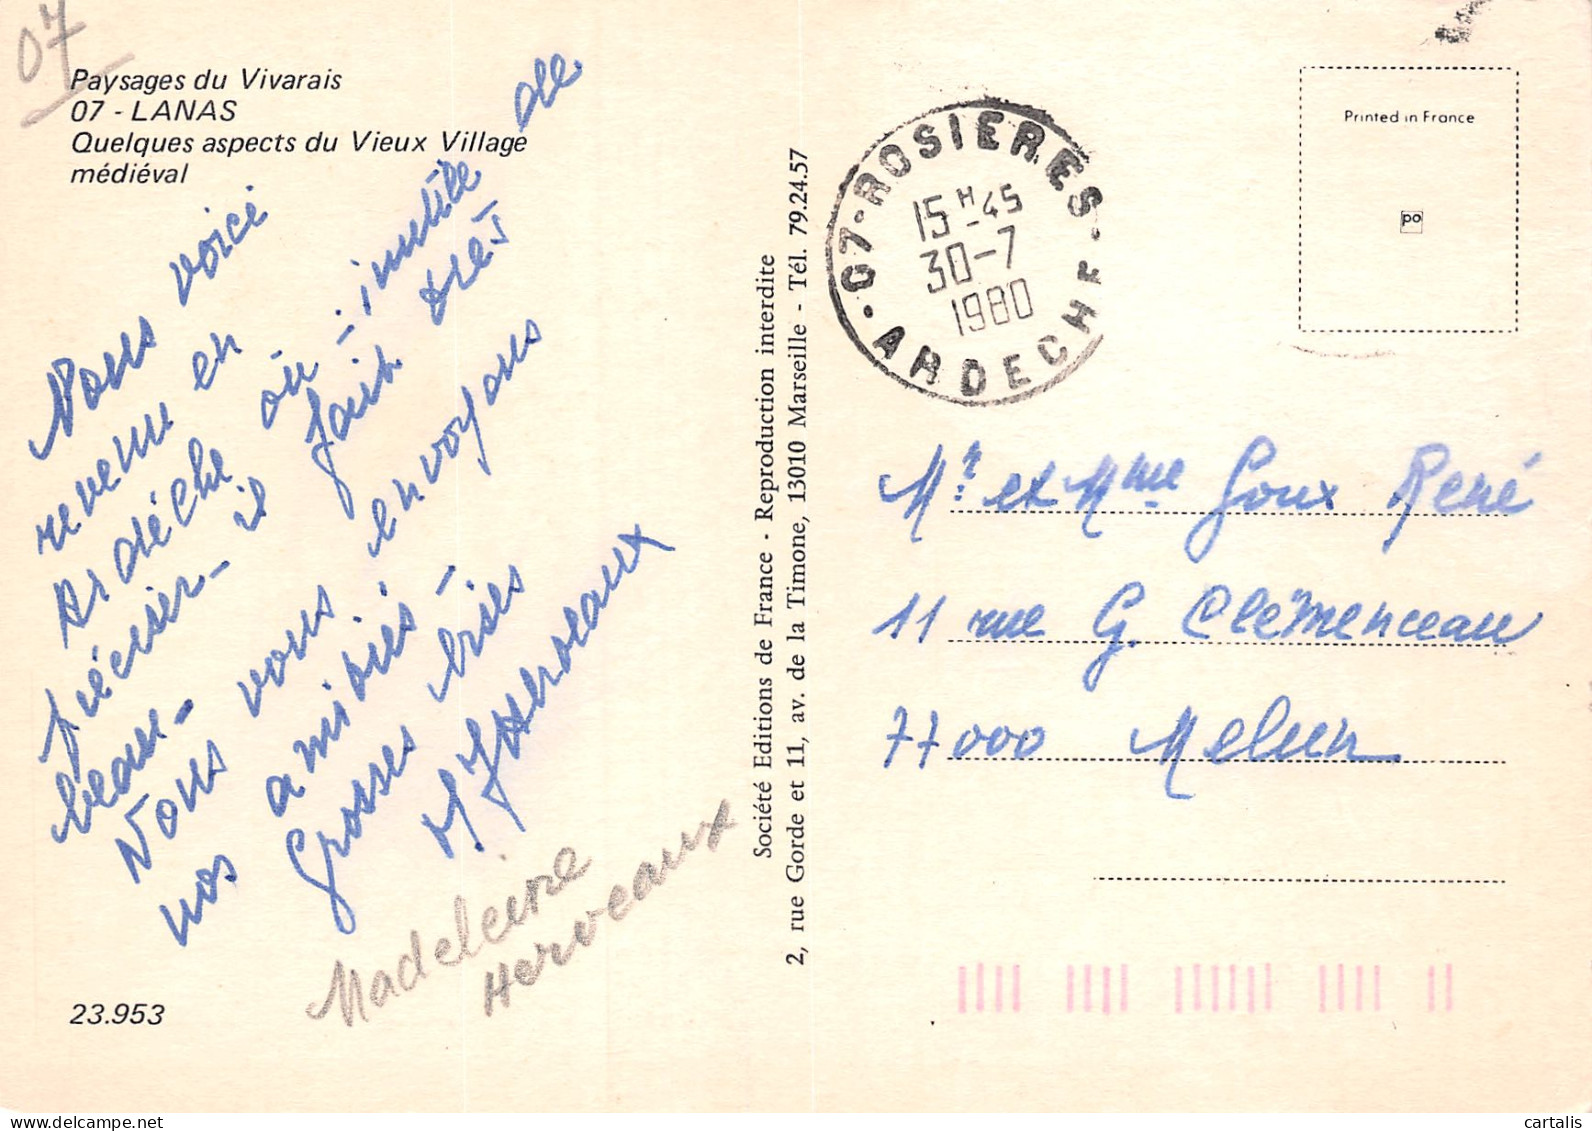 07
Paysages du Vivarais
07 - LANAS
Quelques aspects du Vieux Village
médiéval
Nous voici
revenu en
Ardèche où - inutile de
préciser - il fait très
beau -
Nous vous envoyons
nos amitiés -
Grosses bises
M J Herveaux
Madeleine
Herveaux
23.953
Société Editions de France - Reproduction interdite
2, rue Gorde et 11, av. de la Timone, 13010 Marseille - Tél. 79.24.57
07-ROSIERES-
15 H-45
30-7
1980
ARDECHE
Printed in France
po
Mr et Mme Goux René
11 rue G. Clémenceau
77000 Melun
cartalis